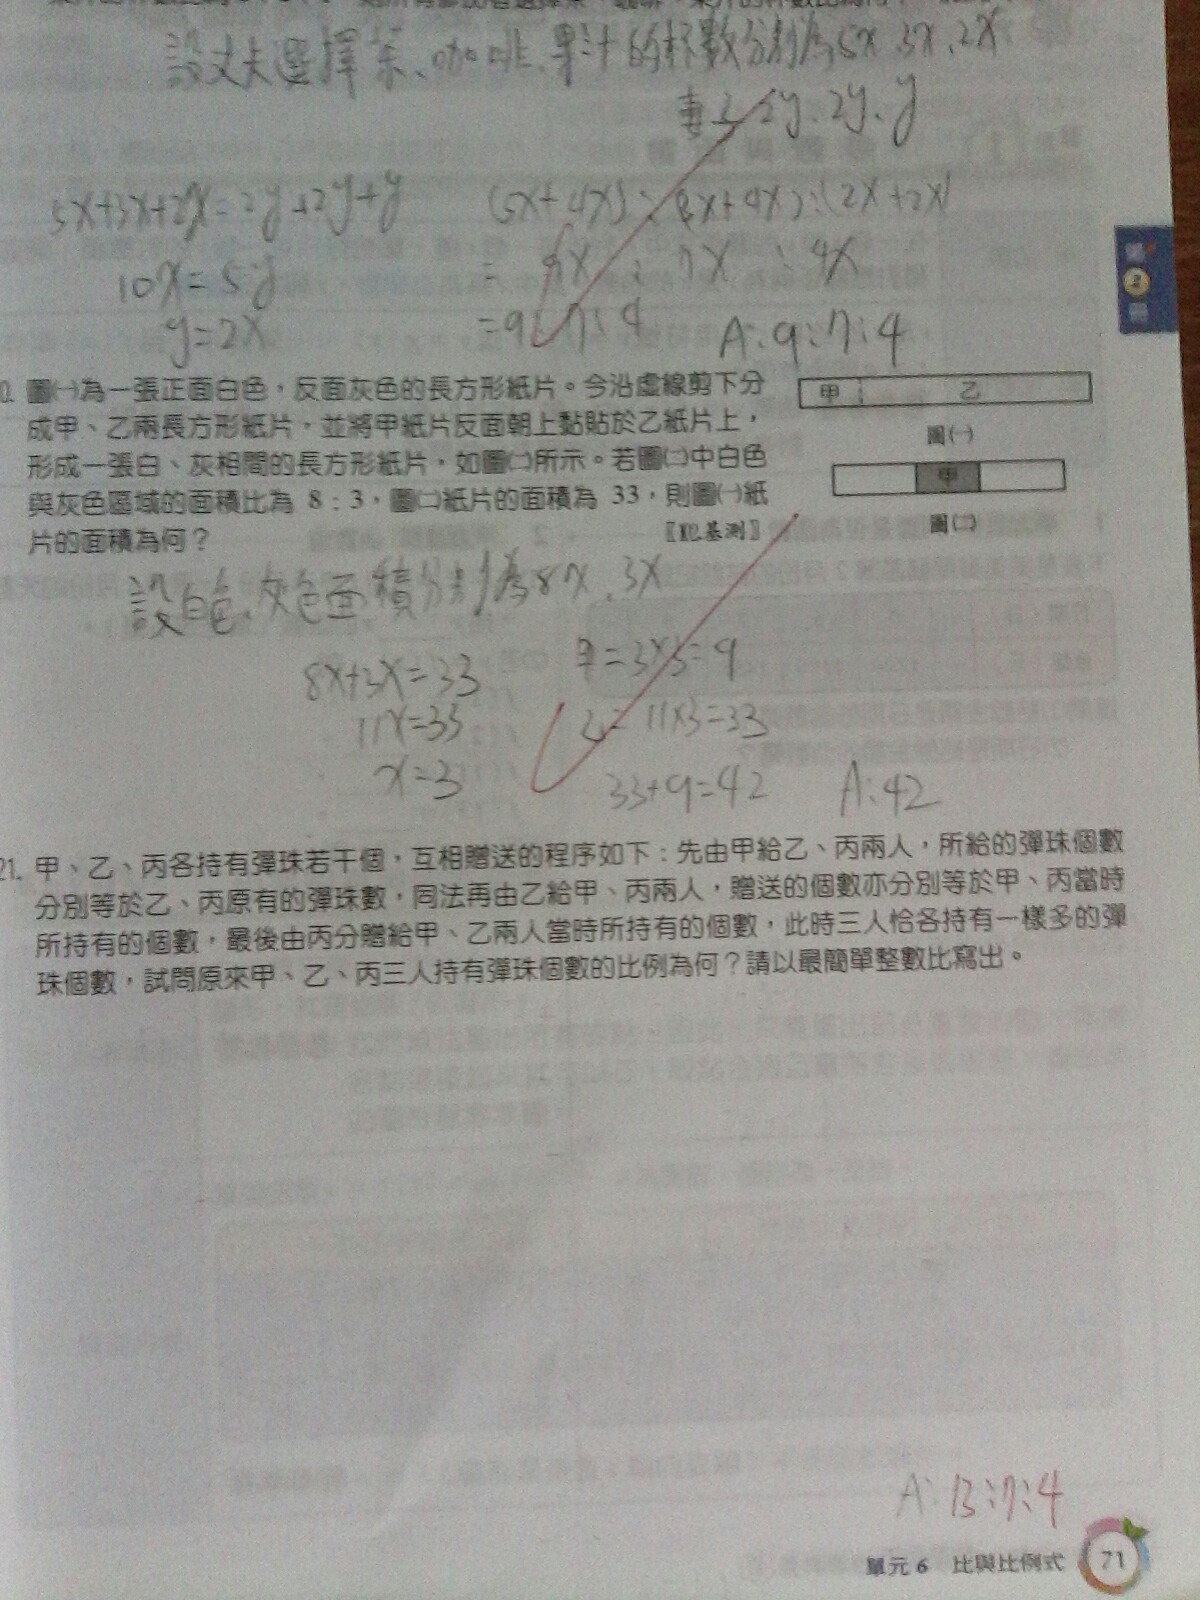 設丈夫選擇茶、咖啡、果汁的杯數分別為5x、3x、2x
妻子 2y、2y、y
5x+3x+2x=2y+2y+y
10x=5y
y=2x
(5x+4x):(3x+4x):(2x+2x)
= 9x : 7x : 4x
=9:7:4
A:9:7:4
0. 圖㈠為一張正面白色,反面灰色的長方形紙片。今沿虛線剪下分
成甲、乙兩長方形紙片,並將甲紙片反面朝上黏貼於乙紙片上,
形成一張白、灰相間的長方形紙片,如圖㈡所示。若圖㈡中白色
與灰色區域的面積比為 8:3,圖㈡紙片的面積為 33,則圖㈠紙
片的面積為何?
基測〗
甲 乙
圖㈠
甲
圖㈡
設白色、灰色面積分別為8x、3x
8x+3x=33
11x=33
x=3
甲=3×3=9
乙=11×3=33
33+9=42
A:42
21. 甲、乙、丙各持有彈珠若干個,互相贈送的程序如下:先由甲給乙、丙兩人,所給的彈珠個數
分別等於乙、丙原有的彈珠數,同法再由乙給甲、丙兩人,贈送的個數亦分別等於甲、丙當時
所持有的個數,最後由丙分贈給甲、乙兩人當時所持有的個數,此時三人恰各持有一樣多的彈
珠個數,試問原來甲、乙、丙三人持有彈珠個數的比例為何?請以最簡單整數比寫出。
A:13:7:4
單元 6 比與比例式 71
2